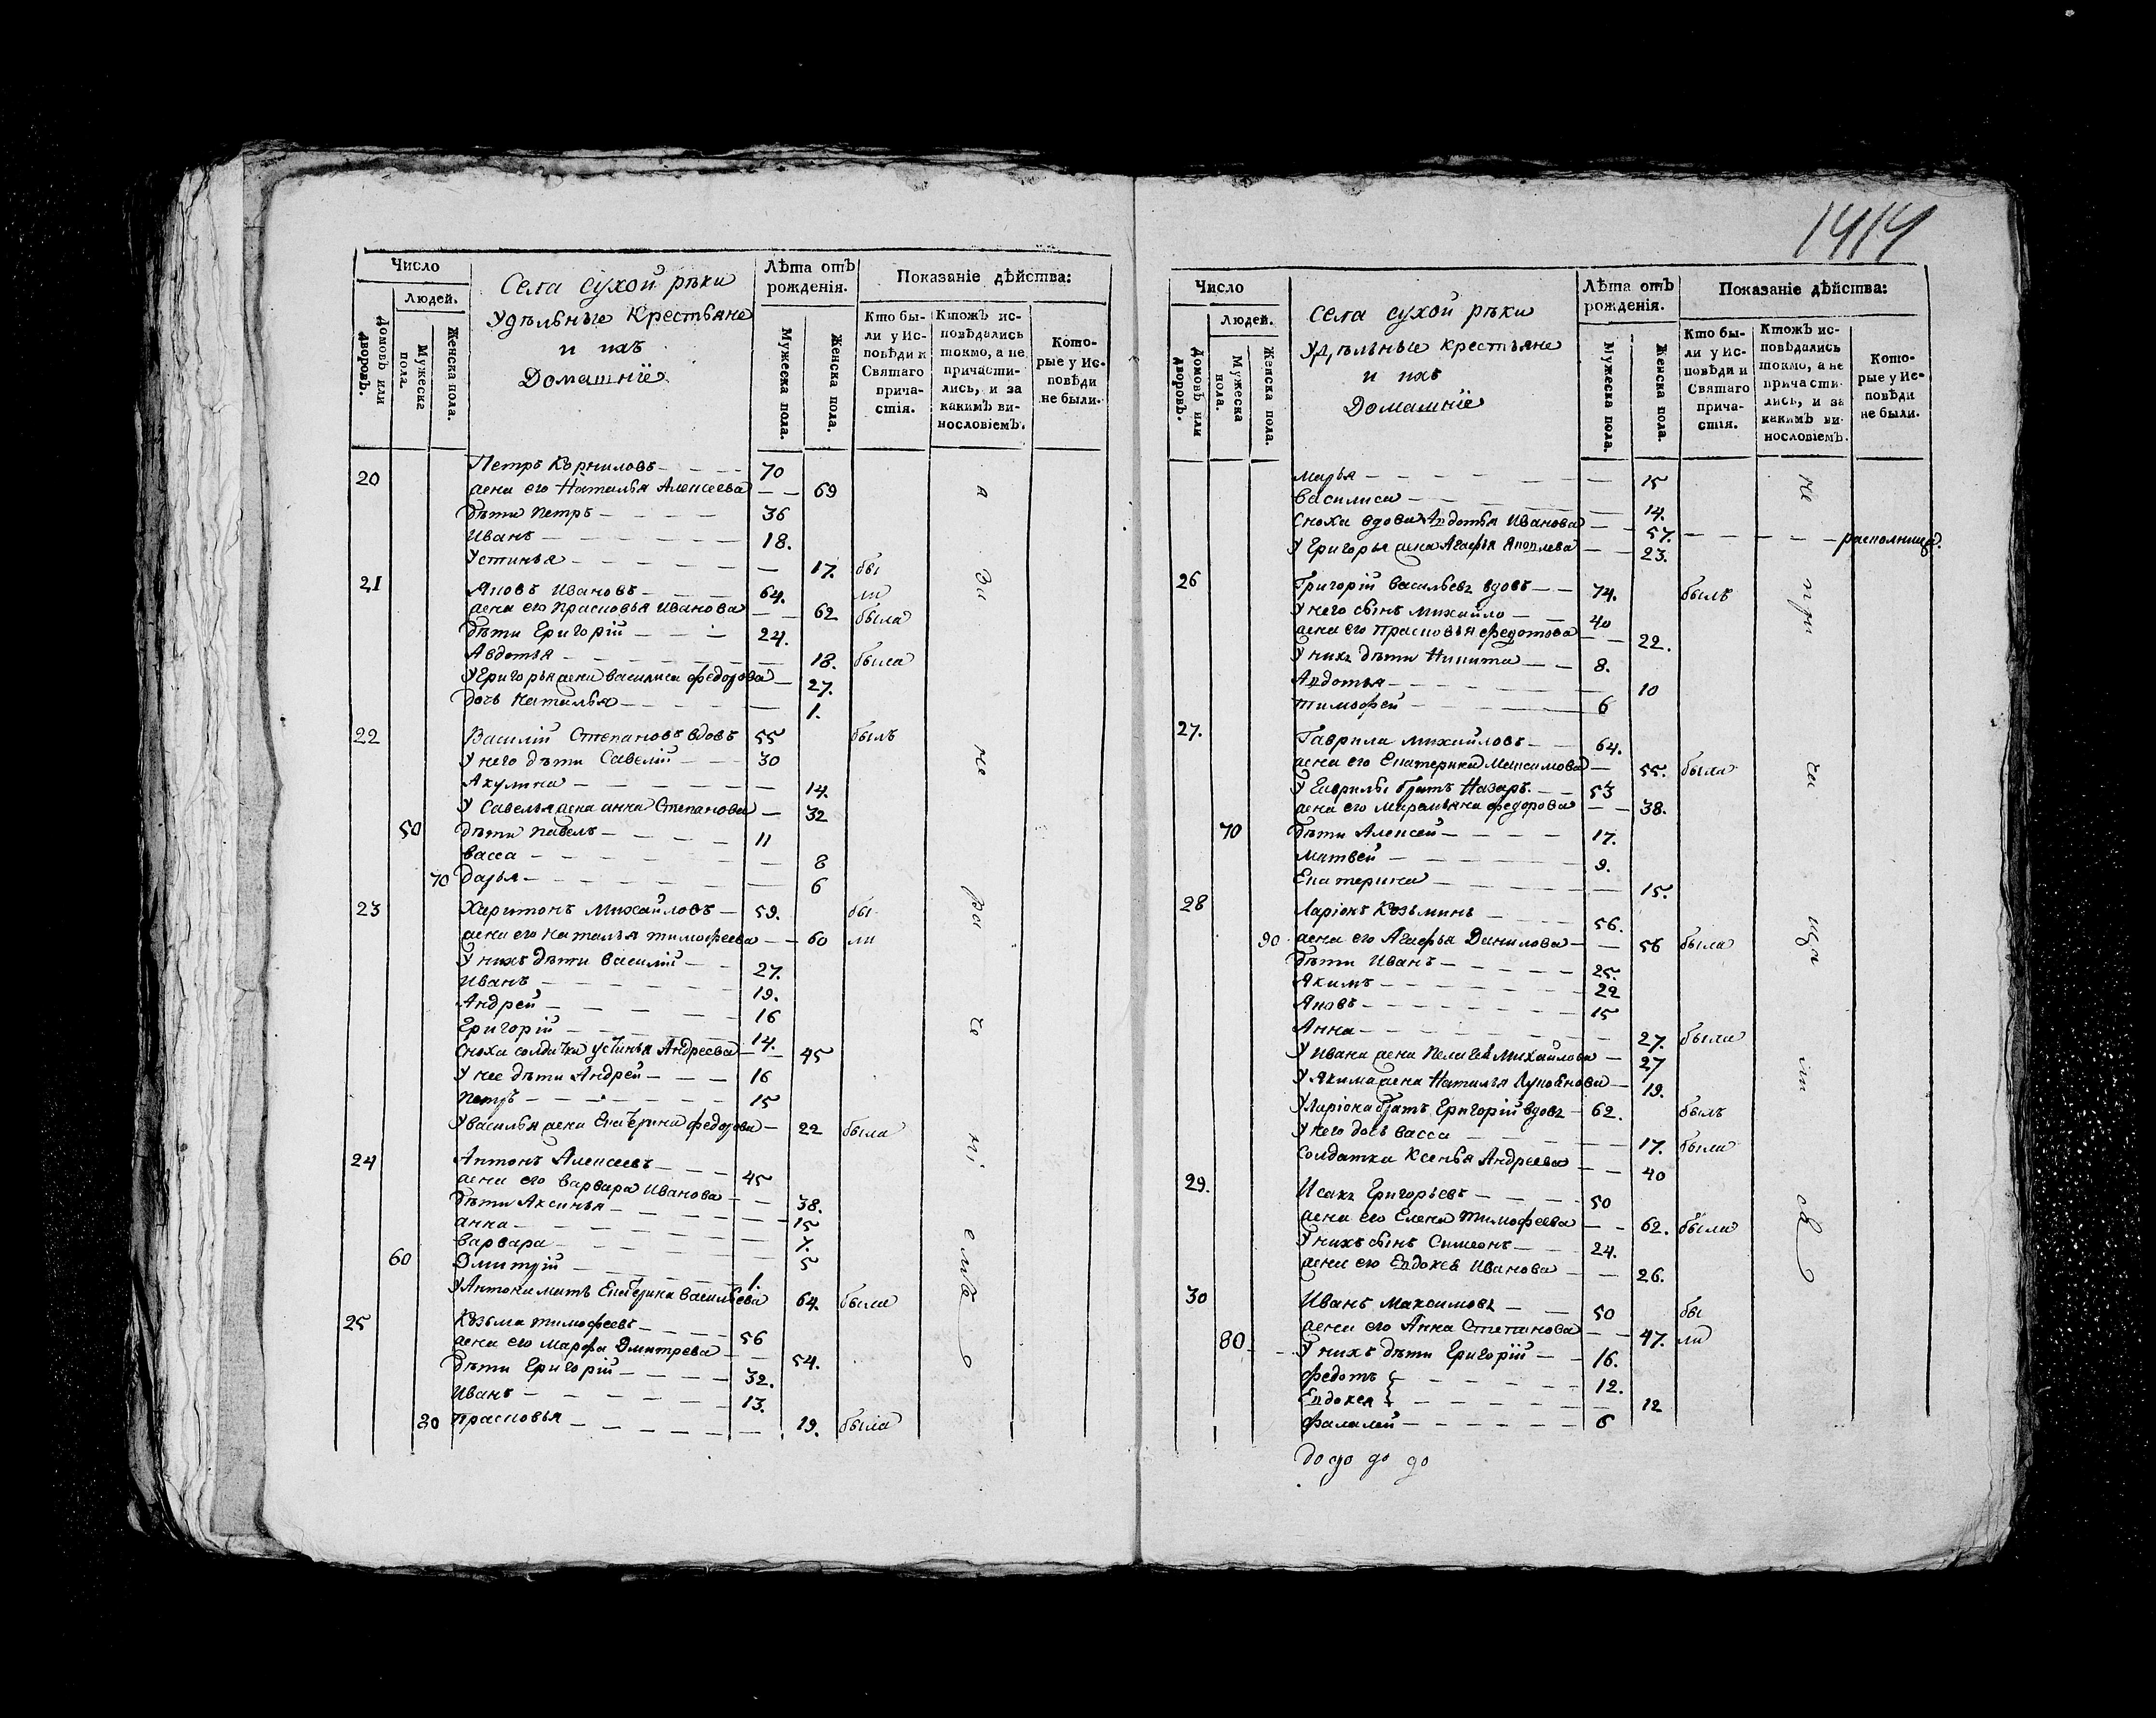 1414
Число
Людей.
Домовъ или дворовъ.
Мужеска пола.
Женска пола.
Села сухой рѣки
Удѣльные Крестьяне
и ихъ
Домашніе
Лѣта отъ рожденія.
Мужеска пола.
Женска пола.
Показаніе дѣйства:
Кто бы-
ли у Ис-
повѣди и
Святаго
прича-
стія.
Ктожъ ис-
повѣдались
токмо, а не
причасти-
лись, и за
какимъ ви-
нословіемъ.
Кото-
рые у Ис-
повѣди
не были.
20 Петръ Корниловъ 70
жена его Наталья Алексеева 69
дѣти Петръ 36
Иванъ 18.
Устинья 17. бы
21 Яковъ Ивановъ 64. ли
жена его Прасковья Иванова 62 была
дѣти Григорій 24.
Авдотья 18. была
У Григорья жена Василиса Федорова 27.
дочь Наталья 1.
22 Василій Степановъ вдовъ 55 былъ
У него дѣти Савелій 30
Акулина 14.
У Савелья жена Анна Степанова 32
50 дѣти Павелъ 11
Васса 8
70 Дарья 6
23 Харитонъ Михайловъ 59. бы
жена его Наталья Тимофеева 60 ли
У нихъ дѣти Василій 27.
Иванъ 19.
Андрей 16
Григорій 14.
Сноха солдатка Устинья Андреева 45
У нее дѣти Андрей 16
Петръ 15
У Василья жена Екатерина Федорова 22 была
24 Антонъ Алексеевъ 45
жена его Варвара Иванова 38.
дѣти Аксинья 15
Анна 7.
Варвара 5
60 Дмитрій 1.
У Антона мать Екатерина Васильева 64. была
25 Козьма Тимофеевъ 56
жена его Марфа Дмитрева 54.
дѣти Григорій 32.
Иванъ 13.
80 Прасковья 19. была
Число
Людей.
Домовъ или дворовъ.
Мужеска пола.
Женска пола.
Села сухой рѣки
Удѣльные крестьяне
и ихъ
Домашніе
Лѣта отъ рожденія.
Мужеска пола.
Женска пола.
Показаніе дѣйства:
Кто бы-
ли у Ис-
повѣди и
Святаго
прича-
стія.
Ктожъ ис-
повѣдались
токмо, а не
причасти-
лись, и за
какимъ ви-
нословіемъ.
Кото-
рые у Ис-
повѣди
не были.
Марья 15
Василиса 14.
Сноха вдова Авдотья Иванова 57. раскольница.
У Григорья жена Агафья Яковлева 23.
26 Григорій Васильевъ вдовъ 74. былъ
У него сынъ Михайло 40
жена его Прасковья Федотова 22.
У нихъ дѣти Никита 8.
Авдотья 10
Тимофей 6
27. Гаврила Михайловъ 64.
жена его Екатерина Максимова 55. была
У Гаврилы братъ Назаръ 53
жена его Маремьяна Федорова 38.
70 дѣти Алексей 17.
Матвей 9.
Екатерина 15.
28 Ларіонъ Козьминъ 56.
90 жена его Агафья Данилова 56 была
дѣти Иванъ 25.
Акимъ 22
Яковъ 15
Анна 27. была
У Ивана жена Пелагея Михайлова 27
У Акима жена Наталья Лукоянова 19.
У Ларіона братъ Григорій вдовъ 62. былъ
У него дочь Васса 17. была
Солдатка Ксенья Андреева 40
29. Исакъ Григорьевъ 50
жена его Елена Тимофеева 62. была
У нихъ сынъ Симеонъ 24.
жена его Евдокея Иванова 26.
30 Иванъ Максимовъ 50 бы
жена его Анна Степанова 47. ли
80 У нихъ дѣти Григорій 16.
Федотъ 12.
Евдокея 12
Фалалей 6